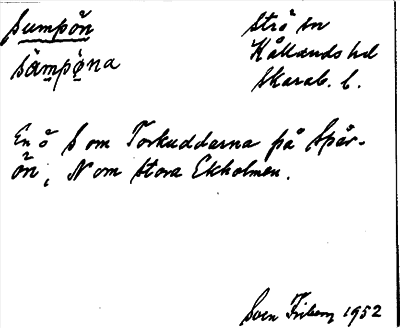 Sumpön
sämpöna
Strö sn
Kållands hd
Skarab. l.
En ö S om Torkuddarna på Spår-
ön, N om Stora Ekholmen.
Sven Friberg 1952